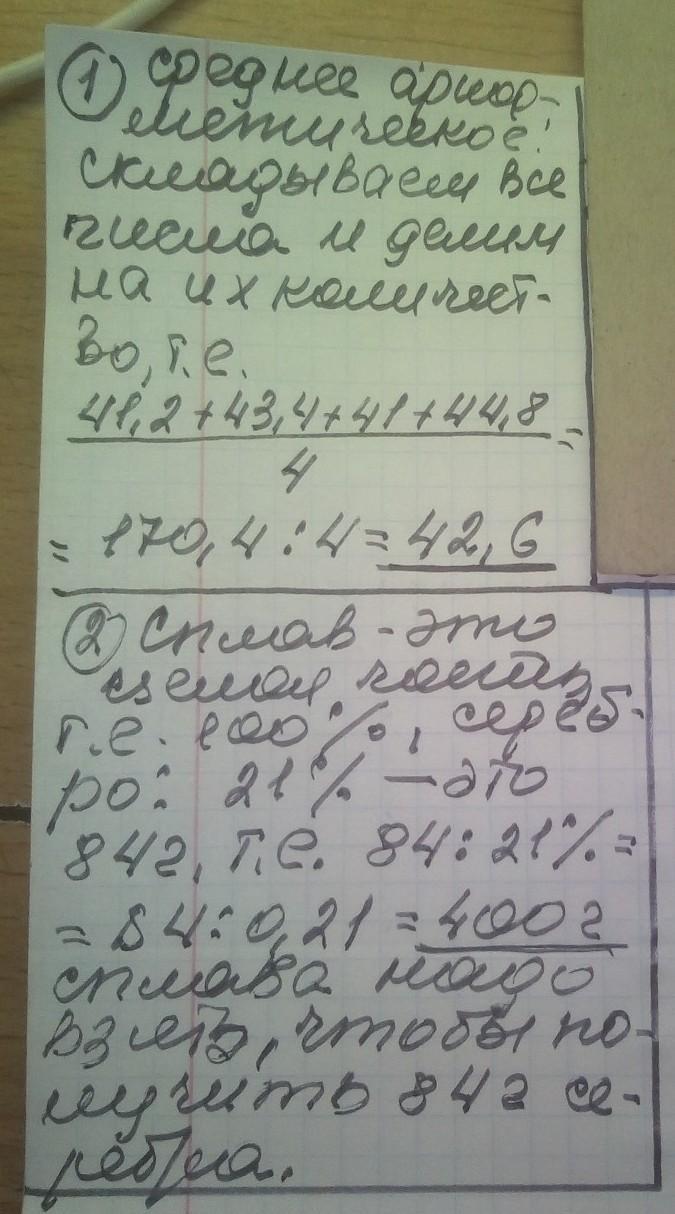 ① среднее ариф-
метическое:
складываем все
числа и делим
на их количест-
во, т.е.
41,2+43,4+41+44,8 =
4
= 170,4:4=42,6
② Сплав - это
целая часть,
т.е. 100%, сереб-
ро: 21% - это
84г, т.е. 84:21% =
= 84:0,21 = 400г
сплава надо
взять, чтобы по-
лучить 84г се-
ребра.